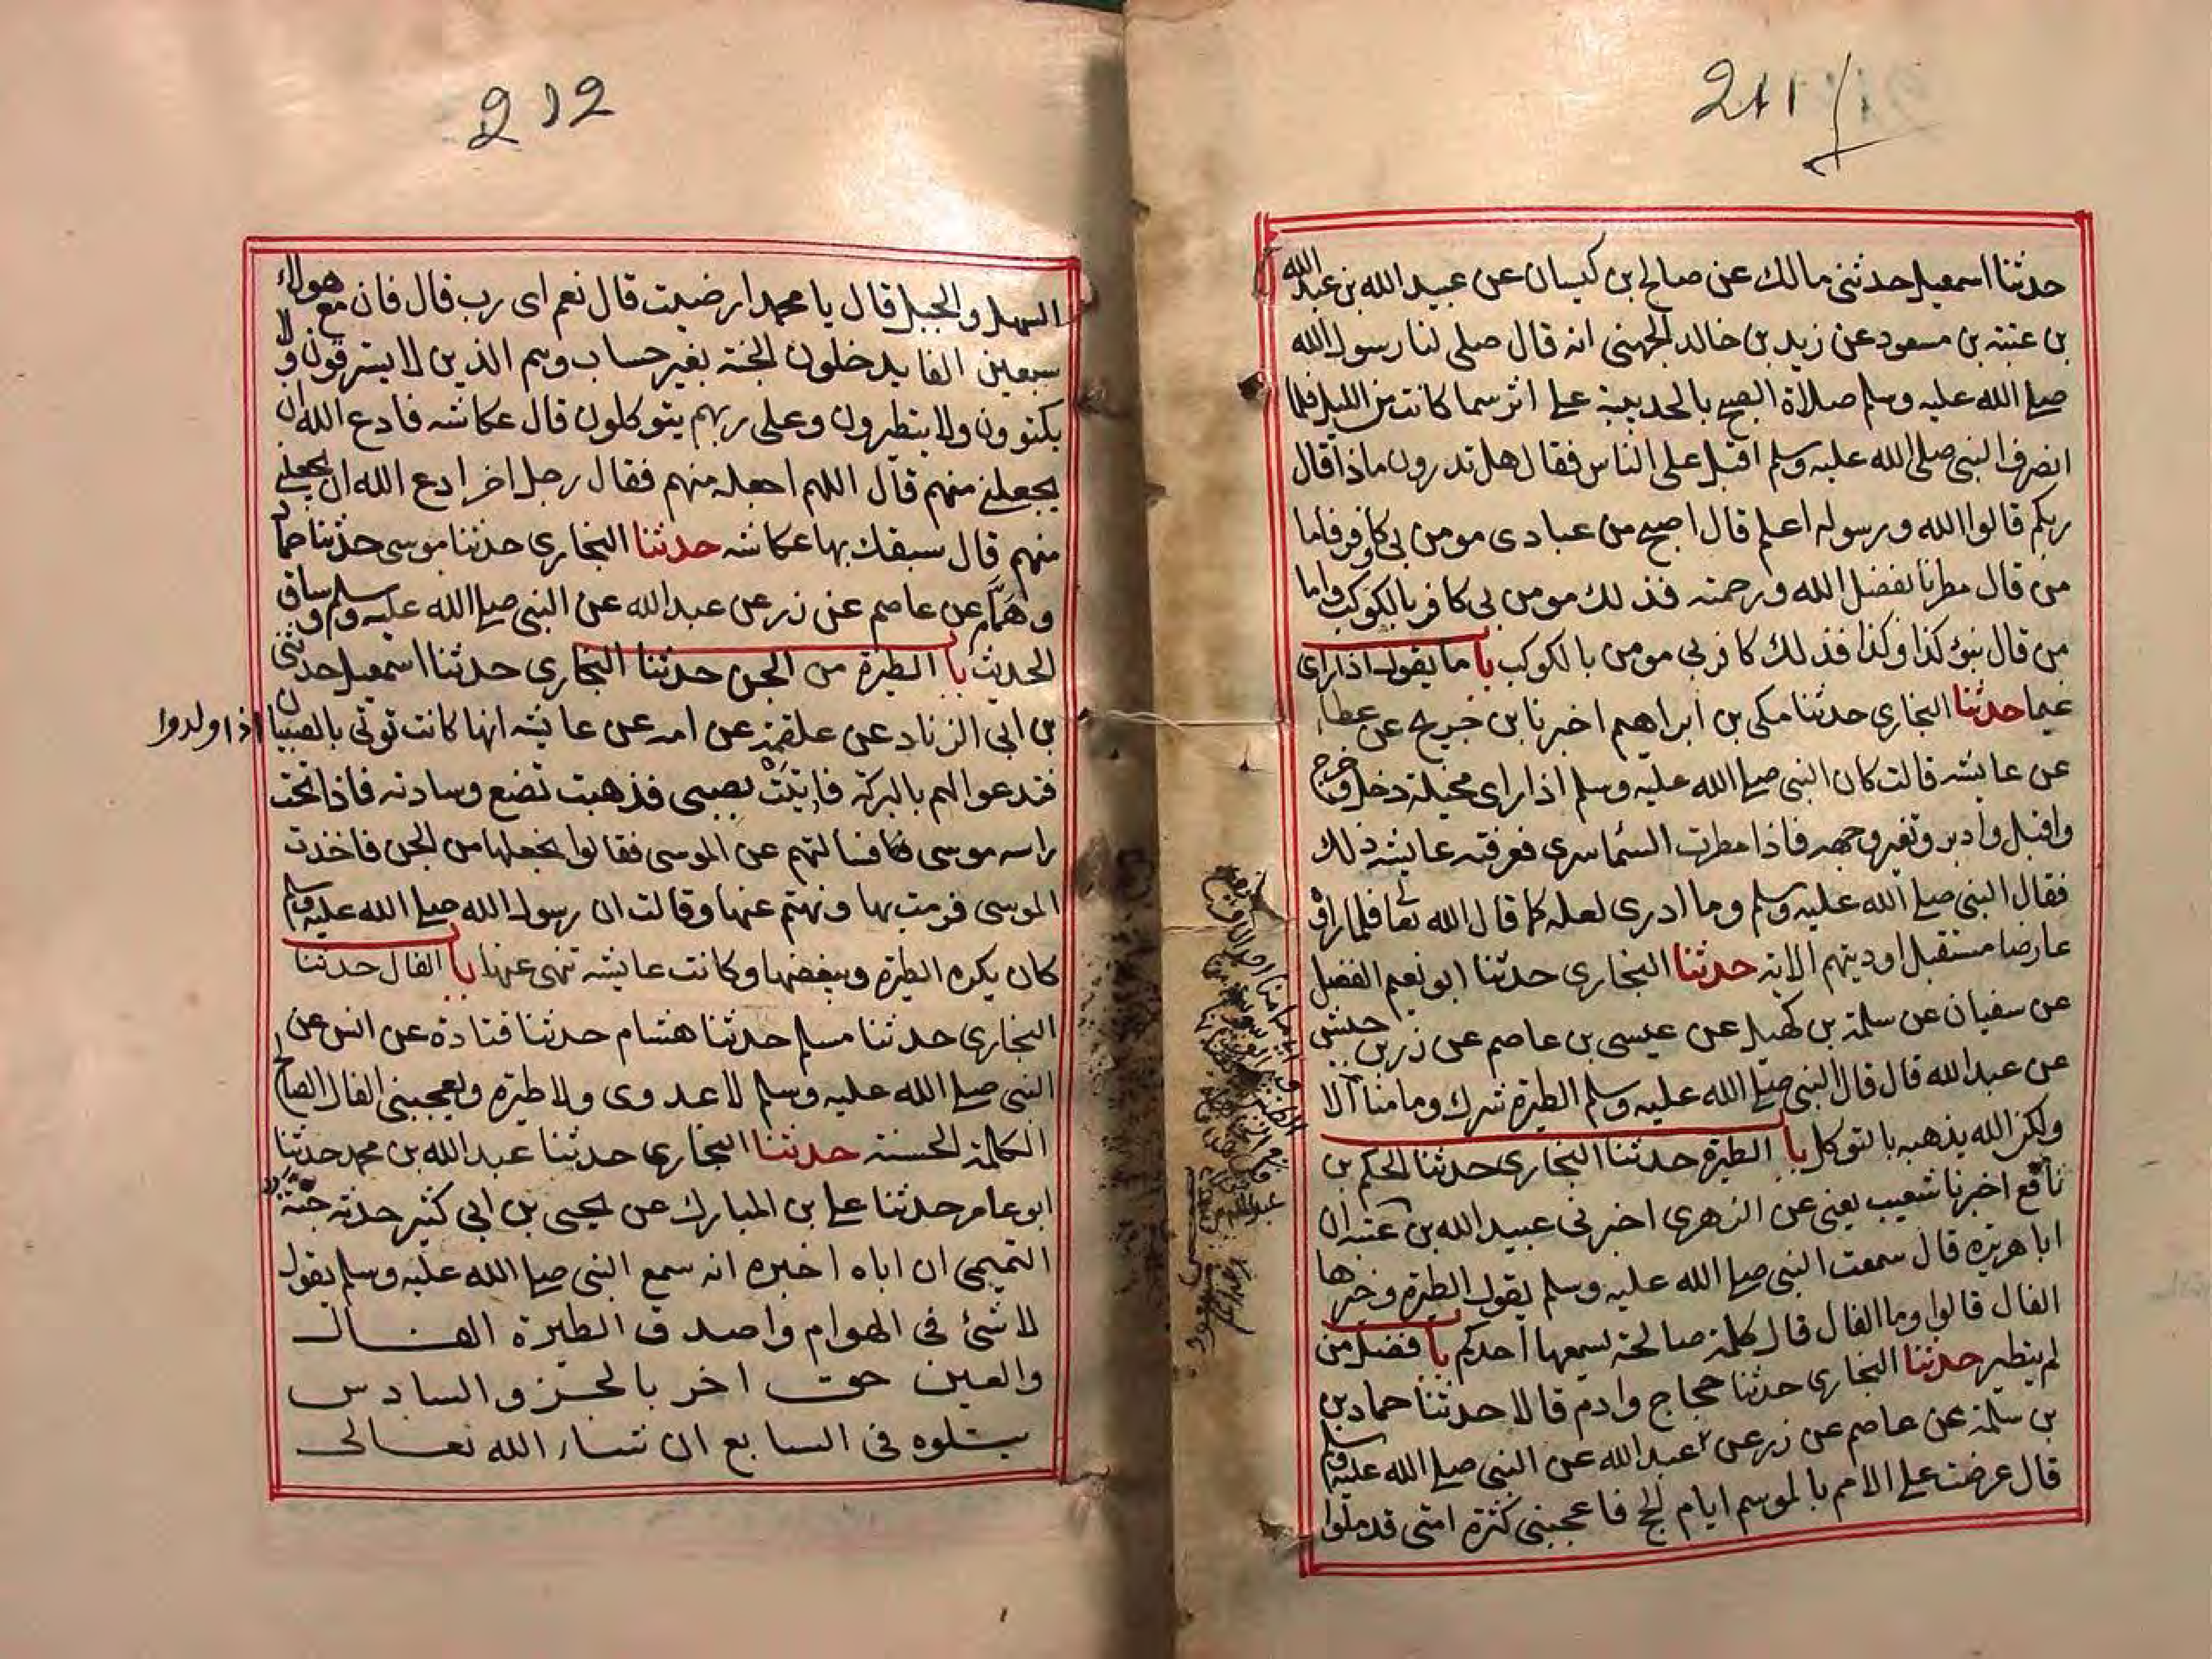 211
حدثنا اسمعيل حدثنى مالك عن صالح بن كيسان عن عبيد الله بن عبد الله
بن عتبة بن مسعود عن زيد بن خالد الجهنى انه قال صلى لنا رسول الله
صلى الله عليه وسلم صلاة الصبح بالحديبية على اثر سما كانت من الليل فلما
انصرف النبى صلى الله عليه وسلم اقبل على الناس فقال هل تدرون ماذا قال
ربكم قالوا الله ورسوله اعلم قال اصبح من عبادى مومن بى وكافر فاما
من قال مطرنا بفضل الله ورحمته فذلك مومن بى كافر بالكوكب واما
من قال بنؤ كذا وكذا فذلك كافر بى مومن بالكوكب با ما يقول اذا راى
غيما حدثنا البخارى حدثنا مكى بن ابراهيم اخبرنا بن جريج عن عطاء
عن عايشه قالت كان النبى صلى الله عليه وسلم اذا راى مخيلة دخل وخرج
واقبل وادبر وتغير وجهه فاذا مطرت السما سرى فعرفته عايشه ذلك
فقال النبى صلى الله عليه وسلم وما ادرى لعله كما قال الله تعا فلما راوه
عارضا مستقبل اوديتهم الاية حدثنا البخارى حدثنا ابو نعيم الفضل
عن سفيان عن سلمة بن كهيل عن عيسى بن عاصم عن زر بن حبيش
عن عبد الله قال قال النبى صلى الله عليه وسلم الطيرة شرك وما منا الا
ولكن الله يذهبه بالتوكل با الطيرة حدثنا البخارى حدثنا الحكم بن
نافع اخبرنا شعيب يعنى عن الزهرى اخبرنى عبيد الله بن عتبه ان
ابا هريره قال سمعت النبى صلى الله عليه وسلم يقول الطيرة وخيرها
الفال قالوا وما الفال قال كلمة صالحة يسمعها احدكم با فضل من
لم يتطير حدثنا البخارى حدثنا حجاج وادم قالا حدثنا حماد بن
بن سلمة عن عاصم عن زر عن عبد الله عن النبى صلى الله عليه وسلم
قال عرضت على الامم بالموسم ايام الحج فاعجبنى كثرة امتى قد ملوا
212
السهل والجبل قال يا محمد ارضيت قال نعم اى رب قال فان مع هولاء
سبعين الفا يدخلون الجنة بغير حساب وهم الذين لا يسترقون ولا
يكتوون ولا يتطيرون وعلى ربهم يتوكلون قال عكاشه فادع الله ان
يجعلنى منهم قال اللهم اجعله منهم فقال رجل اخر ادع الله ان يجعلنى
منهم قال سبقك بها عكاشه حدثنا البخارى حدثنا موسى حدثنا حماد
وهمام عن عاصم عن زر عن عبد الله عن النبى صلى الله عليه وسلم وساق
الحديث با الطيرة من الجن حدثنا البخارى حدثنا اسمعيل حدثنى
بن ابى الزناد عن علقمة عن امه عن عايشه انها كانت توتى بالصبيان اذا ولدوا
فتدعوا لهم بالبركة فاتيت بصبى فذهبت تضع وسادته فاذا تحت
راسه موسى فسالتهم عن الموسى فقالوا نجعلها من الجن فاخذت
الموسى فرمت بها ونهتهم عنها وقالت ان رسول الله صلى الله عليه وسلم
كان يكره الطيرة ويبغضها وكانت عايشه تنهى عنها با الفال حدثنا
البخارى حدثنا مسلم حدثنا هشام حدثنا قتادة عن انس عن
النبى صلى الله عليه وسلم لا عدوى ولا طيرة ويعجبنى الفال الصالح
الكلمة الحسنة حدثنا البخارى حدثنا عبد الله بن محمد حدثنا
ابو عامر حدثنا على بن المبارك عن يحيى بن ابى كثير حدثه حبة
التميمى ان اباه اخبره انه سمع النبى صلى الله عليه وسلم يقول
لا شئ فى الهوام واصدق الطيرة الفال
والعين حق اخر بالجز والسادس
يتلوه فى السابع ان شاء الله تعالى